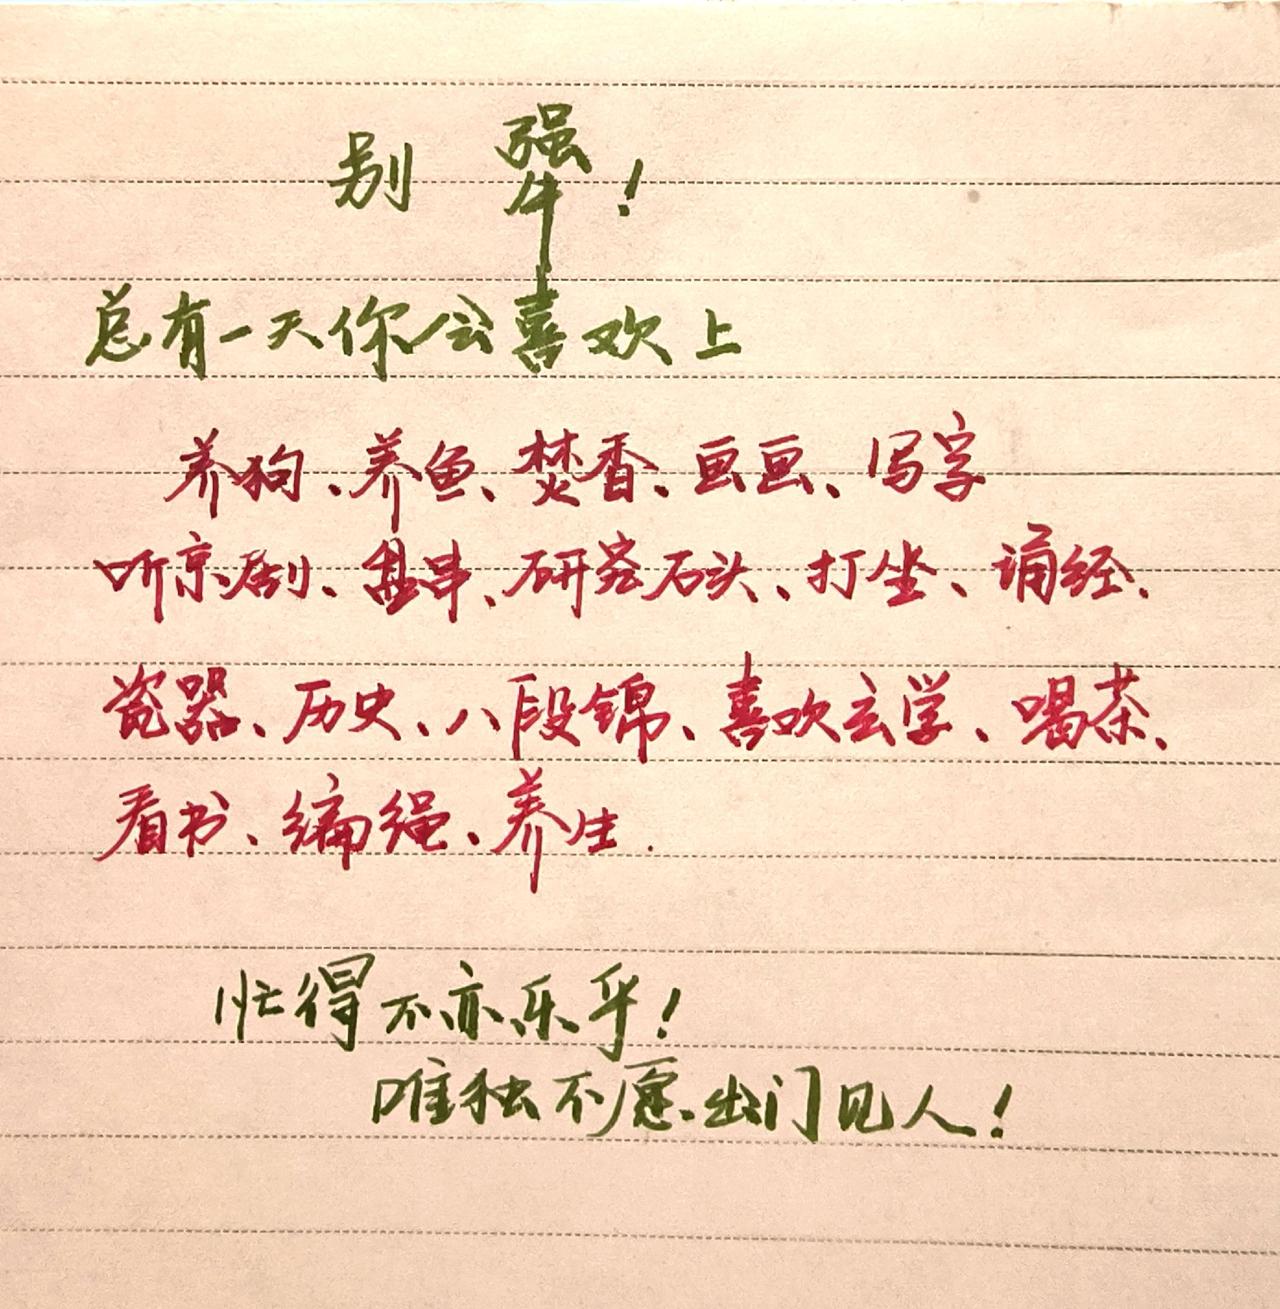 别 犟！
总有一天你会喜欢上
养狗、养鱼、焚香、画画、写字
听京剧、盘串、研究石头、打坐、诵经、
瓷器、历史、八段锦、喜欢玄学、喝茶、
看书、编绳、养生.
忙得不亦乐乎！
唯独不愿出门见人！